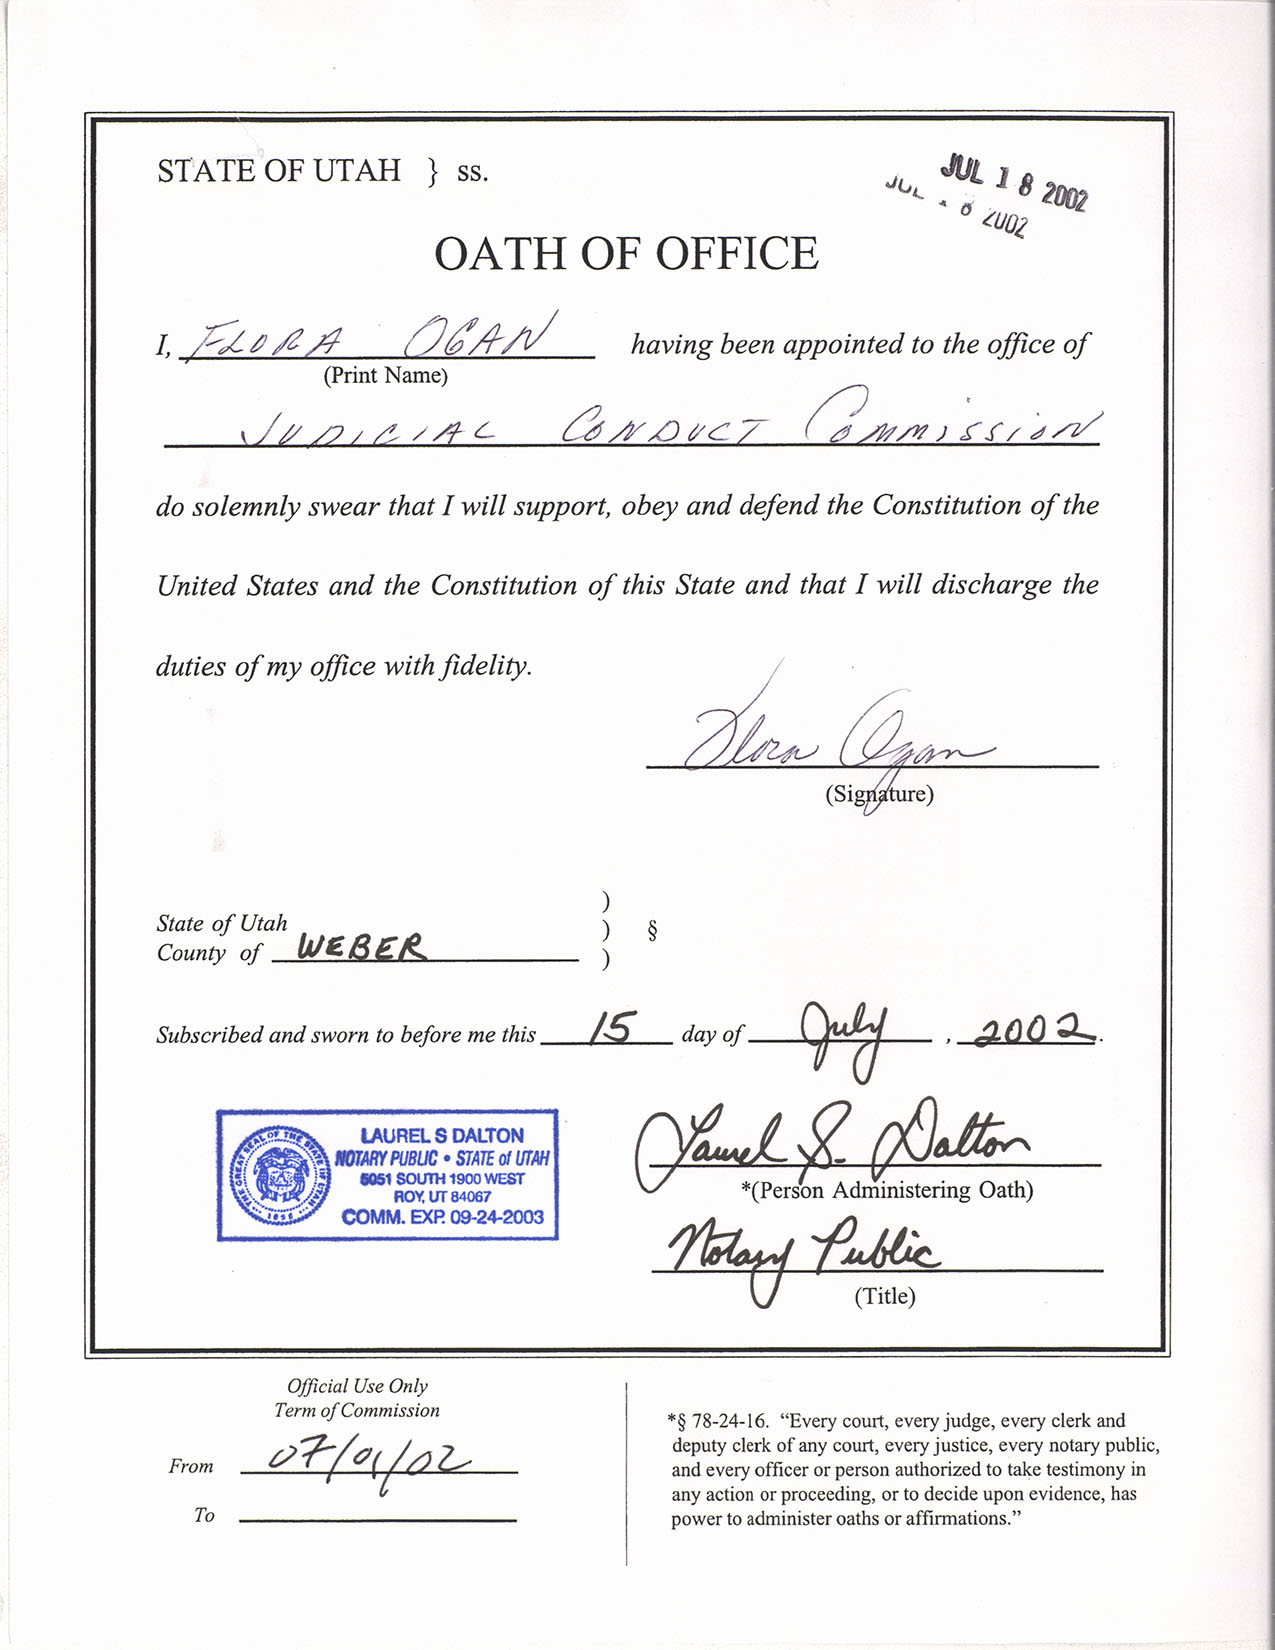 STATE OF UTAH } ss.
JUL 18 2002
JUL 18 2002
OATH OF OFFICE
I, FLORA OGAN having been appointed to the office of
(Print Name)
JUDICIAL CONDUCT COMMISSION
do solemnly swear that I will support, obey and defend the Constitution of the
United States and the Constitution of this State and that I will discharge the
duties of my office with fidelity.
Flora Ogan
(Signature)
)
State of Utah ) §
County of WEBER )
Subscribed and sworn to before me this 15 day of July, 2002.
THE GREAT SEAL OF THE STATE OF UTAH
1896
LAUREL S DALTON
NOTARY PUBLIC • STATE of UTAH
5051 SOUTH 1900 WEST
ROY, UT 84067
COMM. EXP. 09-24-2003
Laurel S. Dalton
*(Person Administering Oath)
Notary Public
(Title)
Official Use Only
Term of Commission
From 07/01/02
To
*§ 78-24-16. “Every court, every judge, every clerk and
deputy clerk of any court, every justice, every notary public,
and every officer or person authorized to take testimony in
any action or proceeding, or to decide upon evidence, has
power to administer oaths or affirmations.”